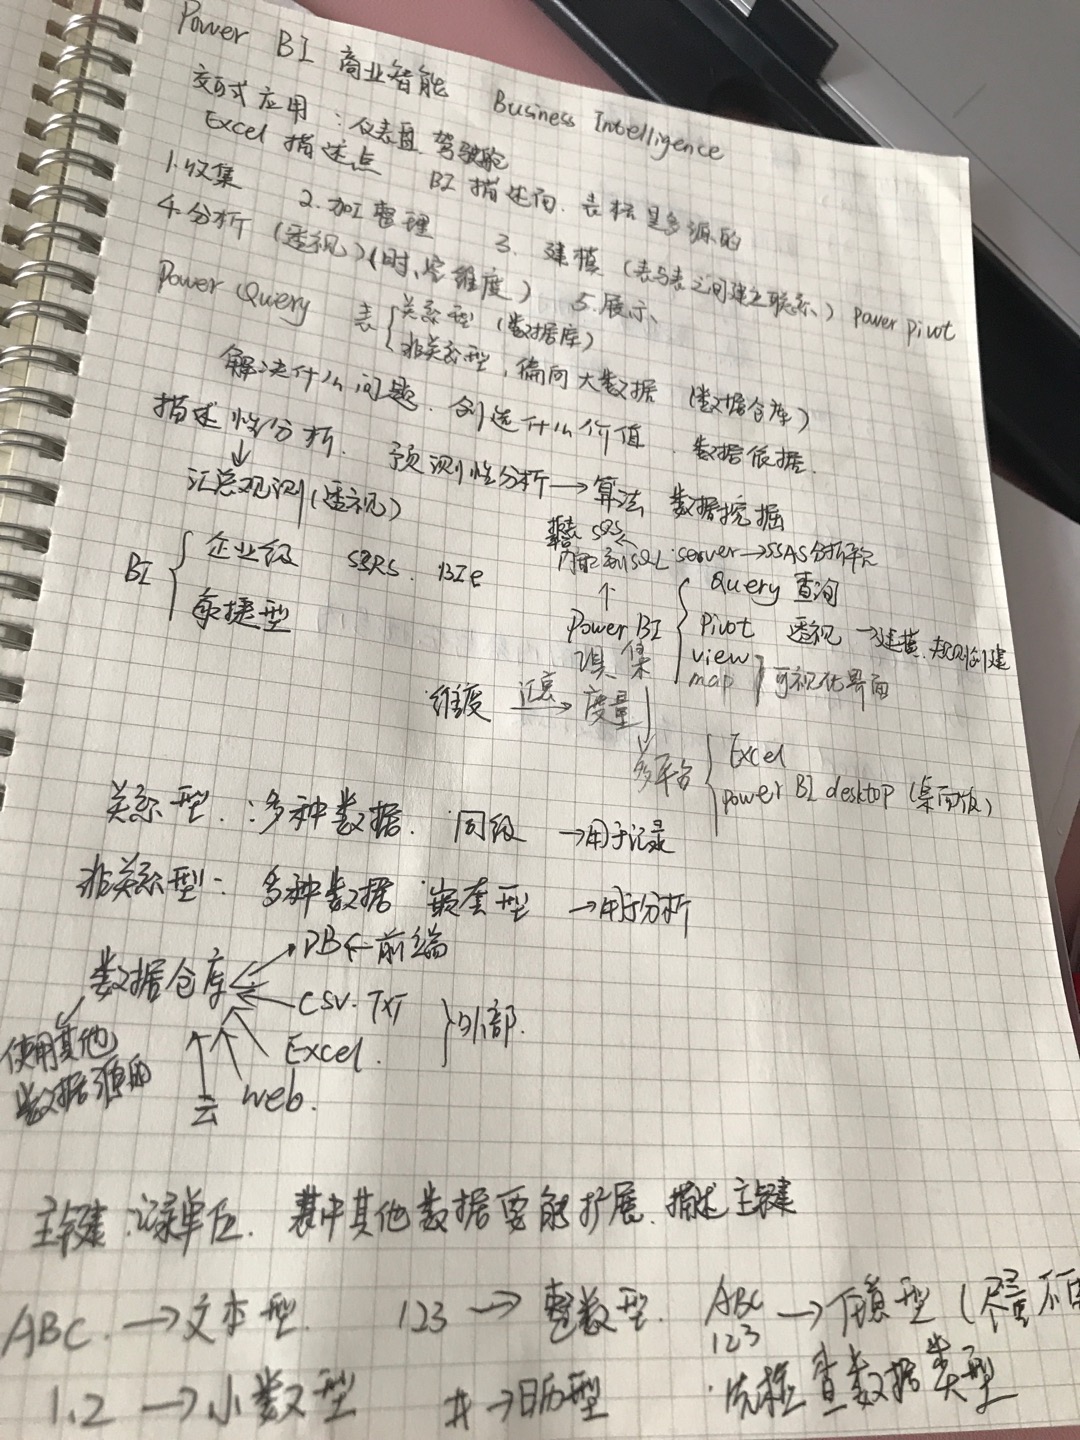 Power BI 商业智能 Business Intelligence
交互式应用：仪表盘、驾驶舱
Excel 描述点 BI 描述面、表格是多源的
1.收集 2.加工整理 3.建模（表与表之间建立联系、）power pivot
4.分析（透视）（时、空维度） 5.展示、
Power Query 表 关系型（数据库）
非关系型，偏向大数据（数据仓库）
解决什么问题、创造什么价值、数据依据、
描述性分析、预测性分析→算法 数据挖掘
↓
汇总观测（透视）
SQL server→SSAS分析
BI 企业级
敏捷型
↑
Power BI
Query 查询
Pivot 透视→建模、
view
map 可视化界面
维度 汇总→ 度量
多平台 Excel
power BI desktop（桌面版）
关系型：多种数据、同级 →用于记录
非关系型：多种数据 嵌套型 →用于分析
数据仓库 DB←前端
CSV、TXT
Excel、
web、
云
外部、
使用其他
数据源的
主键：记录单位、表中其他数据要能扩展、描述主键
ABC、→文本型、 123 → 整数型、 ABC
123 →任意型（尽量不
1.2 →小数型 #→日历型 先检查数据类型